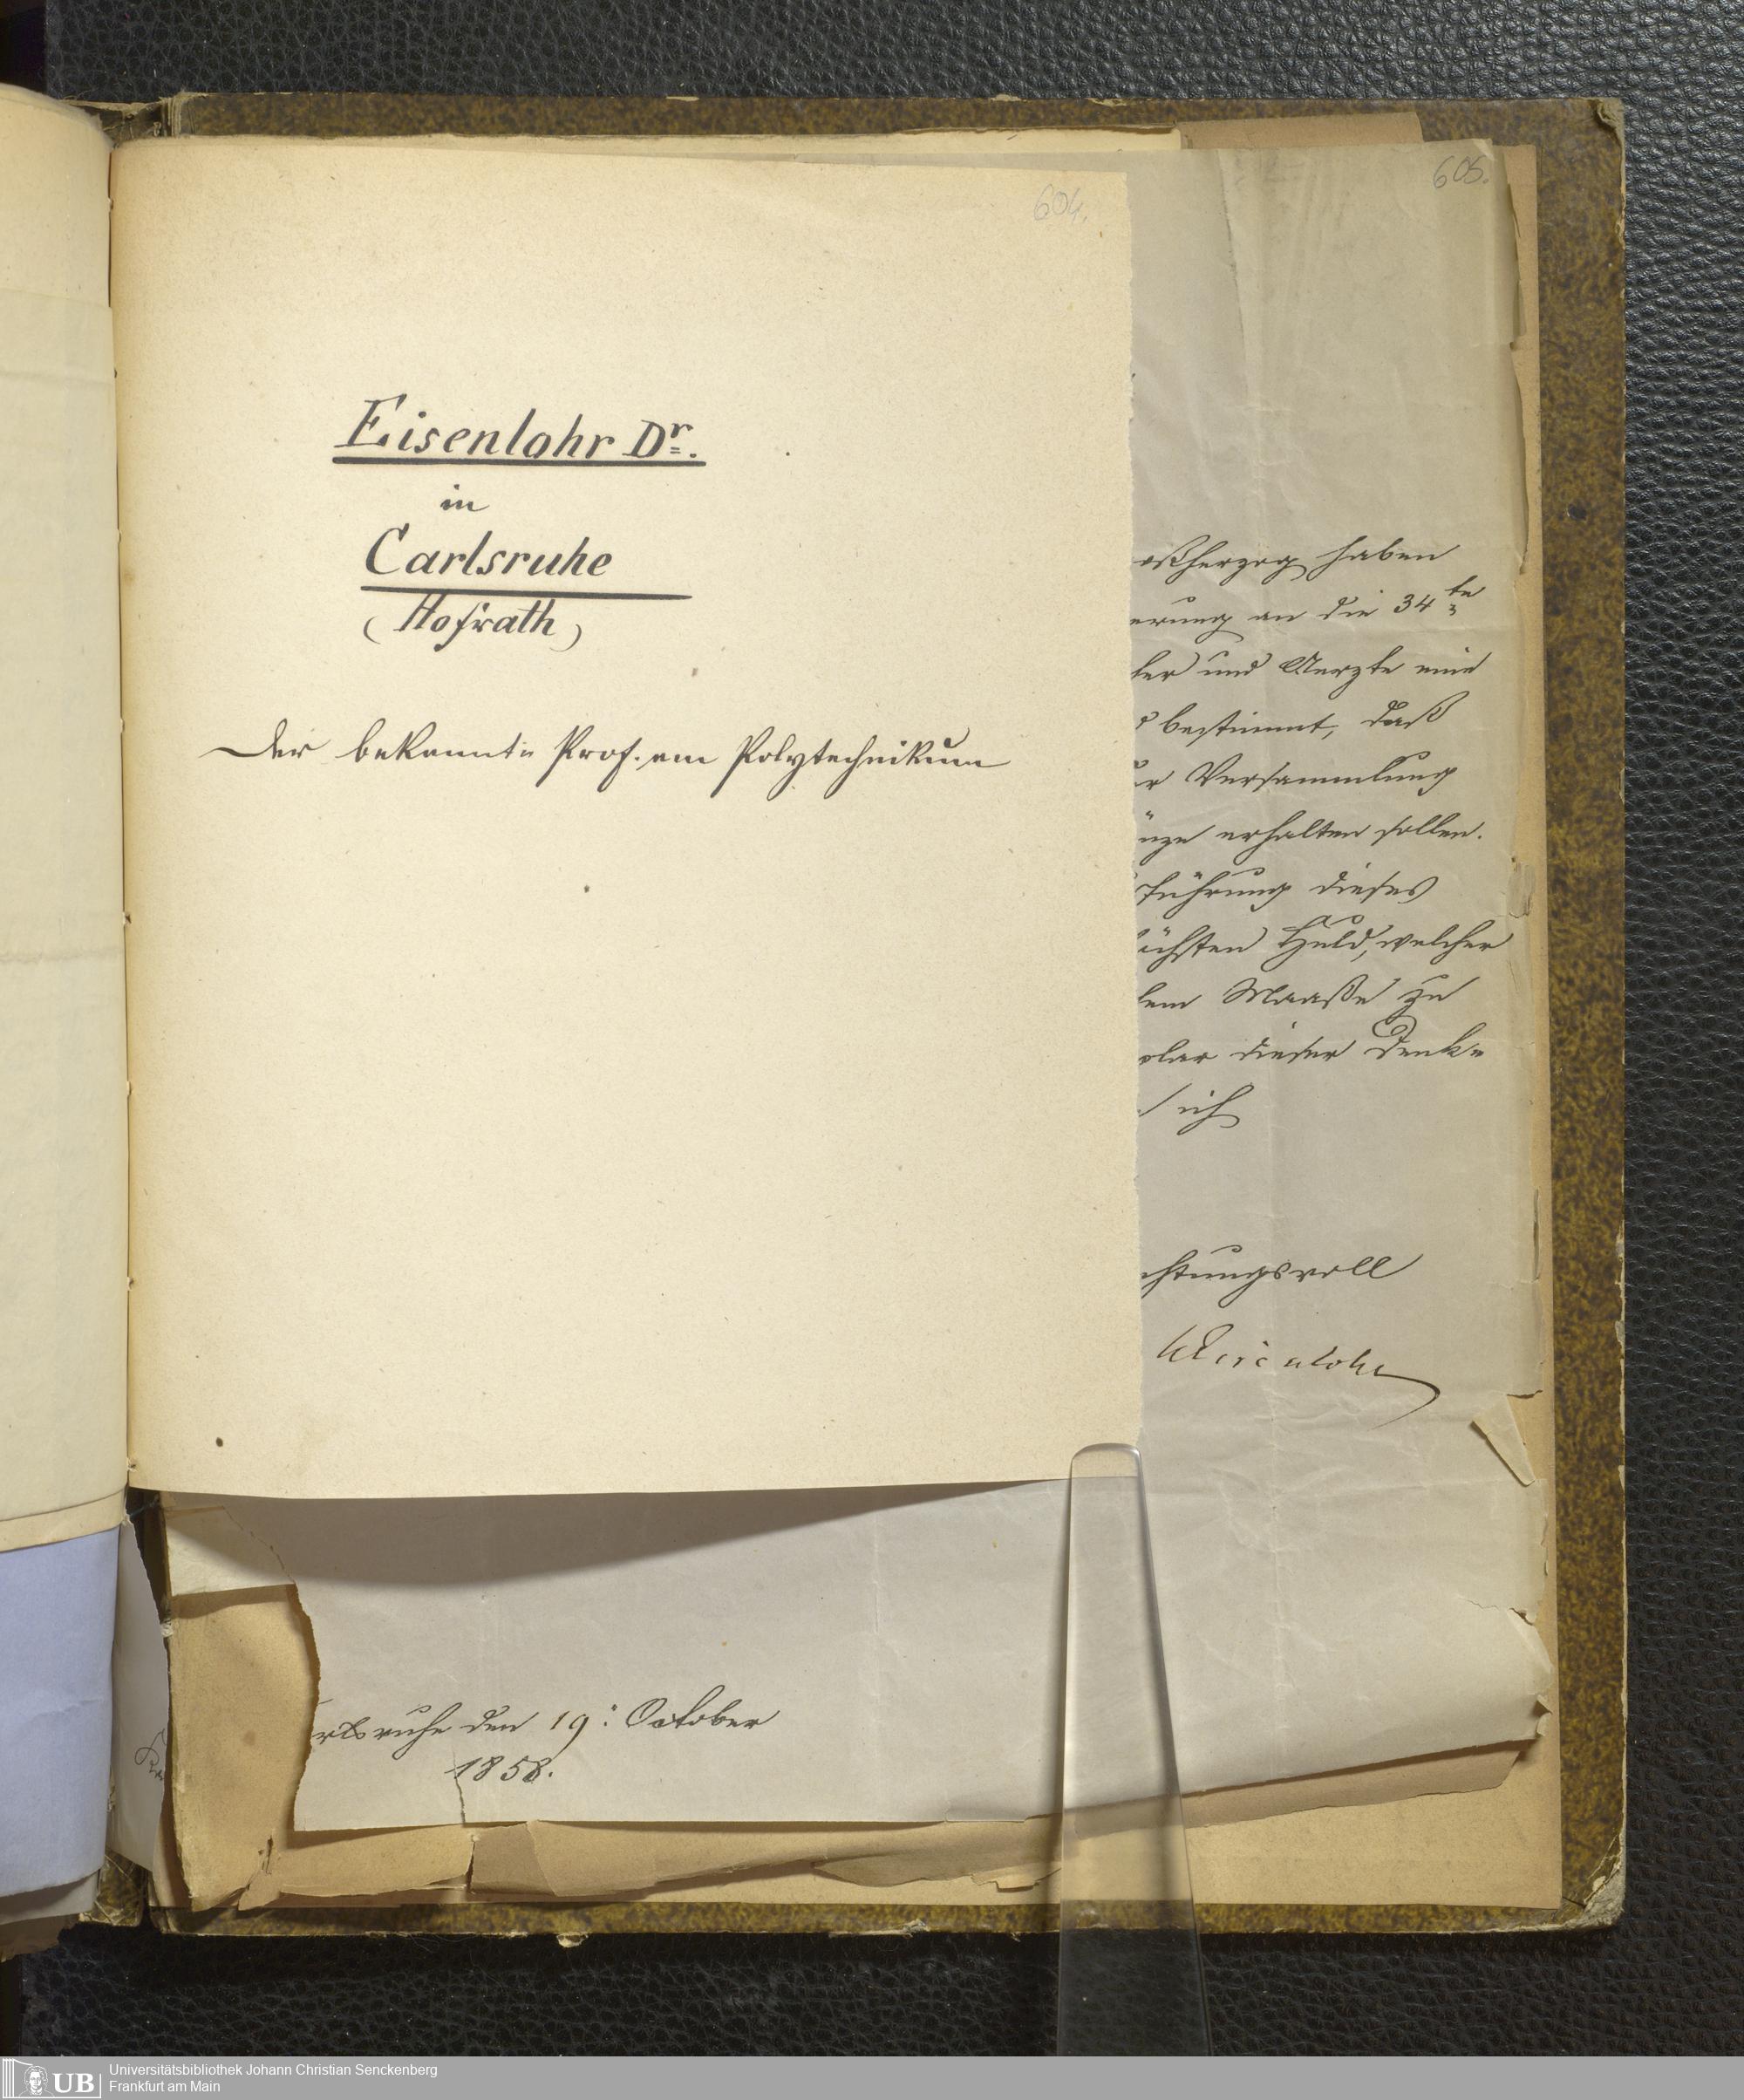 604.
Eisenlohr Dr.
in
Carlsruhe
(Hofrath)
Der bekannte Prof. am Polytechnikum
605.
oßherzog haben
erung an die 34te
her und Aerzte eine
bestimmt, daß
Versammlung
nze erhalten sollen.
führung dieses
öchsten Huld, welcher
lem Maaße zu
plar dieser Denk=
ich
chtungsvoll
Eisenlohr
rlsruhe den 19: October
1858.
UB
Universitätsbibliothek Johann Christian Senckenberg
Frankfurt am Main